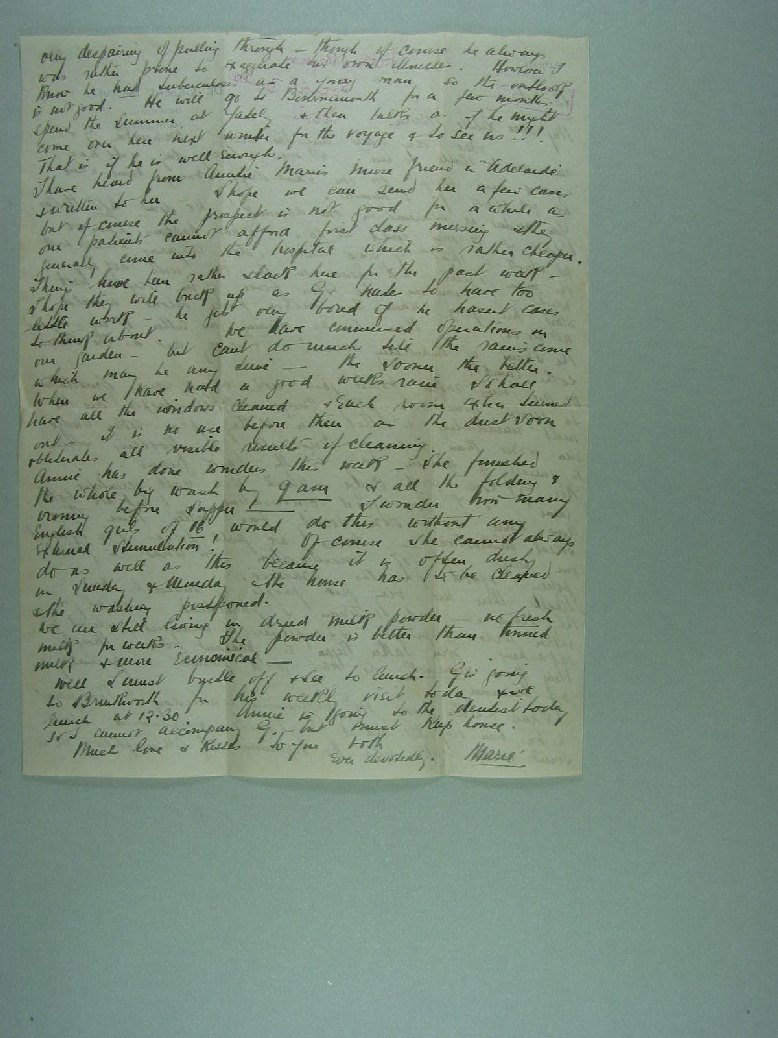 very despairing of pulling through – though of course he always
was rather prone to exagerate his own illnesses. However I
know he had tuberculosis as a young man so the outlook
is not good. He will go to Bournemouth for a few months
spend the summer at & then talks as if he might
come over here next winter for the voyage & to see us!!!
That is if he is well enough.
I have heard from Auntie Marie's nurse friend in Adelaide
& written to her I hope we can send her a few cases
but of course the prospect is not good for a while as
our patients cannot afford first class nursing & they
generally come into the hospital which is rather cheaper.
Things have been rather slack here for the past week –
I hope they will buck up as G. hates to have too
little work – he gets very bored if he hasent cases
to think about. We have commenced operations in
our garden – but cant do much till the rains come
which may be any time – the sooner the better.
When we have had a good weeks rain I shall
have all the windows cleaned & each room turned
out – it is no use before then as the dust soon
obliterates all visible results of cleaning.
Annie has done wonders this week – she finished
the whole big wash by 9 am & all the folding &
ironing before supper I wonder how many
English girls of 16 would do this without any
external stimulation! Of course she cannot always
do as well as this because it is often dusty
on Sunday & Monday & the house has to be cleaned
& the washing postponed.
We are still living on dried milk powder – no fresh
milk for weeks – The powder is better than tinned
milk & more economical –
Well I must bustle off & see to lunch. G is going
to Brinkworth for his weekly visit today & we
lunch at 12.30 Annie is going to the dentist today
so I cannot accompany G. but must keep house.
Much love & kisses to you both
Ever devotedly. Marie